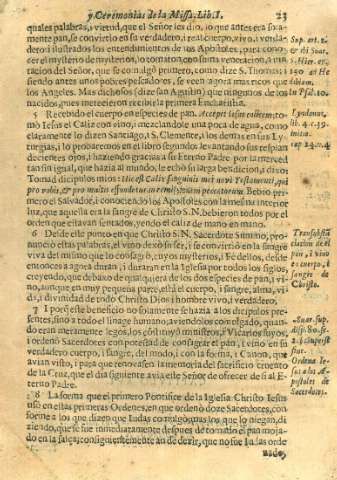 y Ceremonias de la Missa. Lib. I. 23
quales palabras, i viendo, que el Señor les dio, lo que antes era sola-
mente pan, se convirtio en su verdadero, i real Cuerpo, vivo, i verda-
dero: i ilustrados los entendimientos de los Apostoles, para cono-
cer el mysterio de mysterios, lo tomaron, con suma veneracion, a imi-
tacion del Señor, que se comulgò primero, como dize S. Thomas; i
siendo antes unos pobres pescadores, se veen agora mas ricos que
los Angeles. Mas dichosos (dize san Agustin) que ningunos de los
nacidos, pues merecieron recibir la primera Eucharistia.
5 Recebido el cuerpo en especies de pan. Accepit Iesus calicem, to-
mò Iesus el Caliz con vino, mezclandole una poca de agua, como
claramente lo dizen Santiago, i S. Clemente, i los demas en sus Ly-
turgias, i lo probaremos en el libro segundo: levantando sus respla-
decientes ojos, i haziendo gracias a su Eterno Padre por la merced
tan sin igual, que hazia al mundo, le echò su larga bendicion, i dixo:
Tomad dicipulos mios: Hic est Calix sanguinis mei novi Testamenti, qui
pro vobis, & pro multis effundetur in remissionem peccatorum. Bebiò prime-
ro el Salvador, i conociendo los Apostoles con la mesma interior
luz, que aquella era la sangre de Christo S. N. bebieron todos por el
orden que estavan sentados, yendo el caliz de mano en mano.
6 Desde este punto en que Christo S. N. Sacerdote Sumo, pro-
nunciò estas palabras, el vino dexò ser, i se convirtio en la sangre
viva del mismo que lo consagrò, cuyos mysterios, i Fè dellos, desde
entonces a agora duran, i duraran en la Iglesia por todos los siglos,
creyendo, que debaxo de qualquiera de las dos especies de pan, i vi-
no, aunque en muy pequeña parte, està el cuerpo, i sangre, alma, vi-
da, i divinidad de todo Christo Dios i hombre vivo, i verdadero.
7 I porq̃ este beneficio no solamente se hazia a los dicipulos pre-
sentes, sino a todo el linage humano, aviendolos comulgado, quan-
do eran meramente legos, los cõstituyò ministros, i Vicarios suyos,
i ordenò Sacerdotes con potestad de consagrar el pan, i vino en su
verdadero cuerpo, i sangre, del modo, i con la forma, i Canon, que
avian visto, i para que renovassen la memoria del sacrificio cruento
de la Cruz, que el dia siguiente avia este Señor de ofrecer de si al E-
terno Padre.
8 La forma que el primero Pontifice de la Iglesia Christo Iesus
usò en estas primeras Ordenes, en que ordenò doze Sacerdotes, con-
forme a los que dizen que Iudas comulgò; que los que lo niegan, di-
ziendo, que se fue inmediatamente despues de tomado el pan moja-
do en la salsa; consiguientemente an de dezir, que no fue Iudas orde
nado,
Transubstã
ciacion de el
pan, i vino
en cuerpo, i
sangre de
Christo.
Ordena Ie-
sus a los A-
postoles de
Sacerdotes.